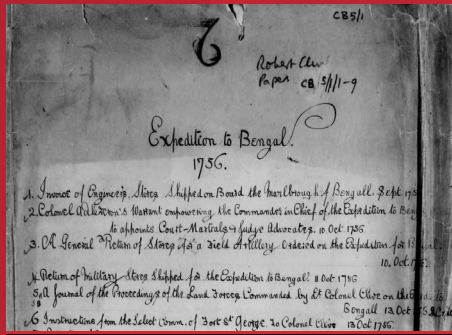 CB5/1
Robert Clive
Papers CB 5/1/1-9
Expedition to Bengal.
1756.
1. Invoice of Engineers Stores Shipped on Board the Marlbrough for Bengall. Sept 1756
2. Colonel Warrant empowering the Commander in Chief of the Expedition to Beng
to appoint Court-Martials & Judge Advocates. 10 Oct 1756
3. A General Return of Stores for a Field Artillery Ordered on the Expedition for
10. Oct
4. Return of Military Stores Shipped for the Expedition to Bengall. 11 Oct 1756
5. A Journal of the Proceedings of the Land Forces Commanded by Lt Colonel Clive on the
Bengall 13 Oct
6 Instructions from the Select Comm. of Fort St George to Colonel Clive 13 Oct